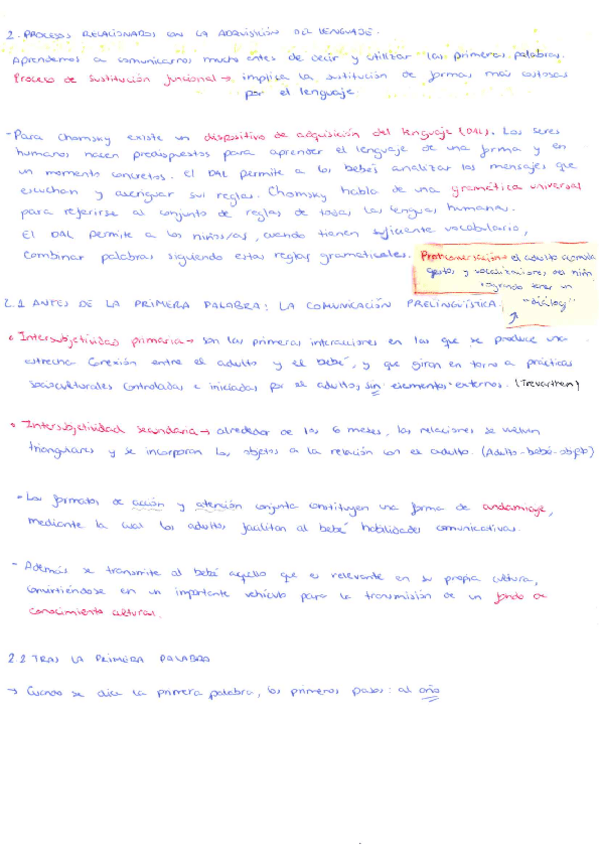 2. PROCESOS RELACIONADOS CON LA ADQUISICIÓN DEL LENGUAJE.
Aprendemos a comunicarnos mucho antes de decir y utilizar las primeras palabras.
Proceso de sustitución funcional → implica la sustitución de formas más costosas
por el lenguaje
- Para Chomsky existe un dispositivo de adquisición del lenguaje (DAL). Los seres
humanos nacen predispuestos para aprender el lenguaje de una forma y en
un momento concretos. El DAL permite a los bebés analizar los mensajes que
escuchan y averiguar sus reglas. Chomsky habla de una gramática universal
para referirse al conjunto de reglas de todas las lenguas humanas.
El DAL permite a los niños/as, cuando tienen suficiente vocabulario,
combinar palabras siguiendo estas reglas gramaticales.
Protoconversación: el adulto acomoda
gestos y vocalizaciones del niñ
logrando tener un
"diálogo"
2.1 ANTES DE LA PRIMERA PALABRA: LA COMUNICACIÓN PRELINGÜÍSTICA.
• Intersubjetividad primaria → son las primeras interacciones en las que se produce una
estrecha conexión entre el adulto y el bebé, y que giran en torno a prácticas
socioculturales controladas e iniciadas por el adulto, sin elementos externos. (Trevarthen)
• Intersubjetividad secundaria → alrededor de los 6 meses, las relaciones se vuelven
triangulares y se incorporan los objetos a la relación con el adulto. (Adulto-bebé-objeto)
• Los formatos de acción y atención conjunta constituyen una forma de andamiaje,
mediante la cual los adultos facilitan al bebé habilidades comunicativas.
- Además se transmite al bebé aquello que es relevante en su propia cultura,
convirtiéndose en un importante vehículo para la transmisión de un fondo de
conocimiento cultural.
2.2 TRAS LA PRIMERA PALABRA
→ Cuando se dice la primera palabra, los primeros pasos: al año